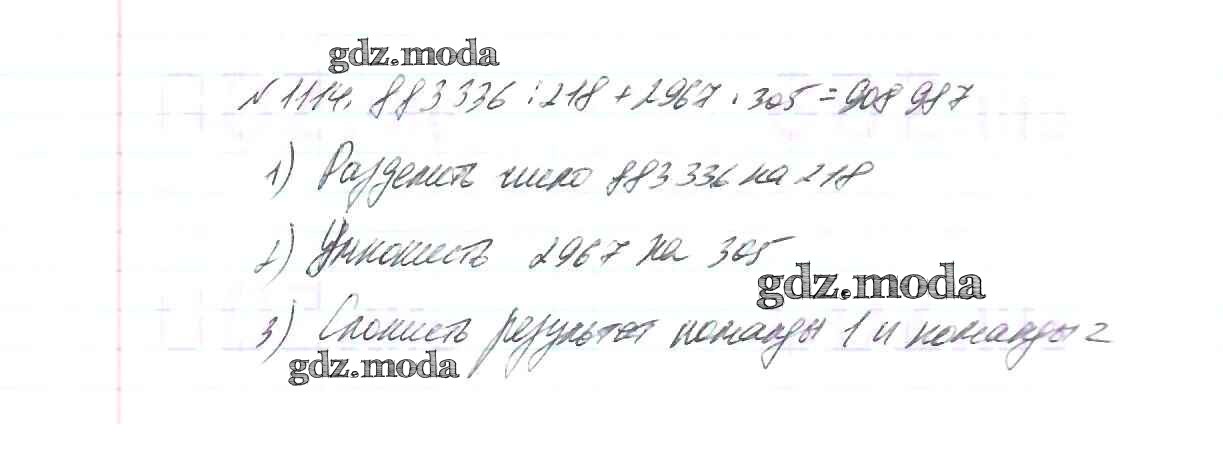 gdz.moda
№ 1114. 883 336 : 218 + 2967 · 305 = 908 987
1) Разделить число 883 336 на 218
2) Умножить 2967 на 305
gdz.moda
3) Сложить результат команды 1 и команды 2
gdz.moda